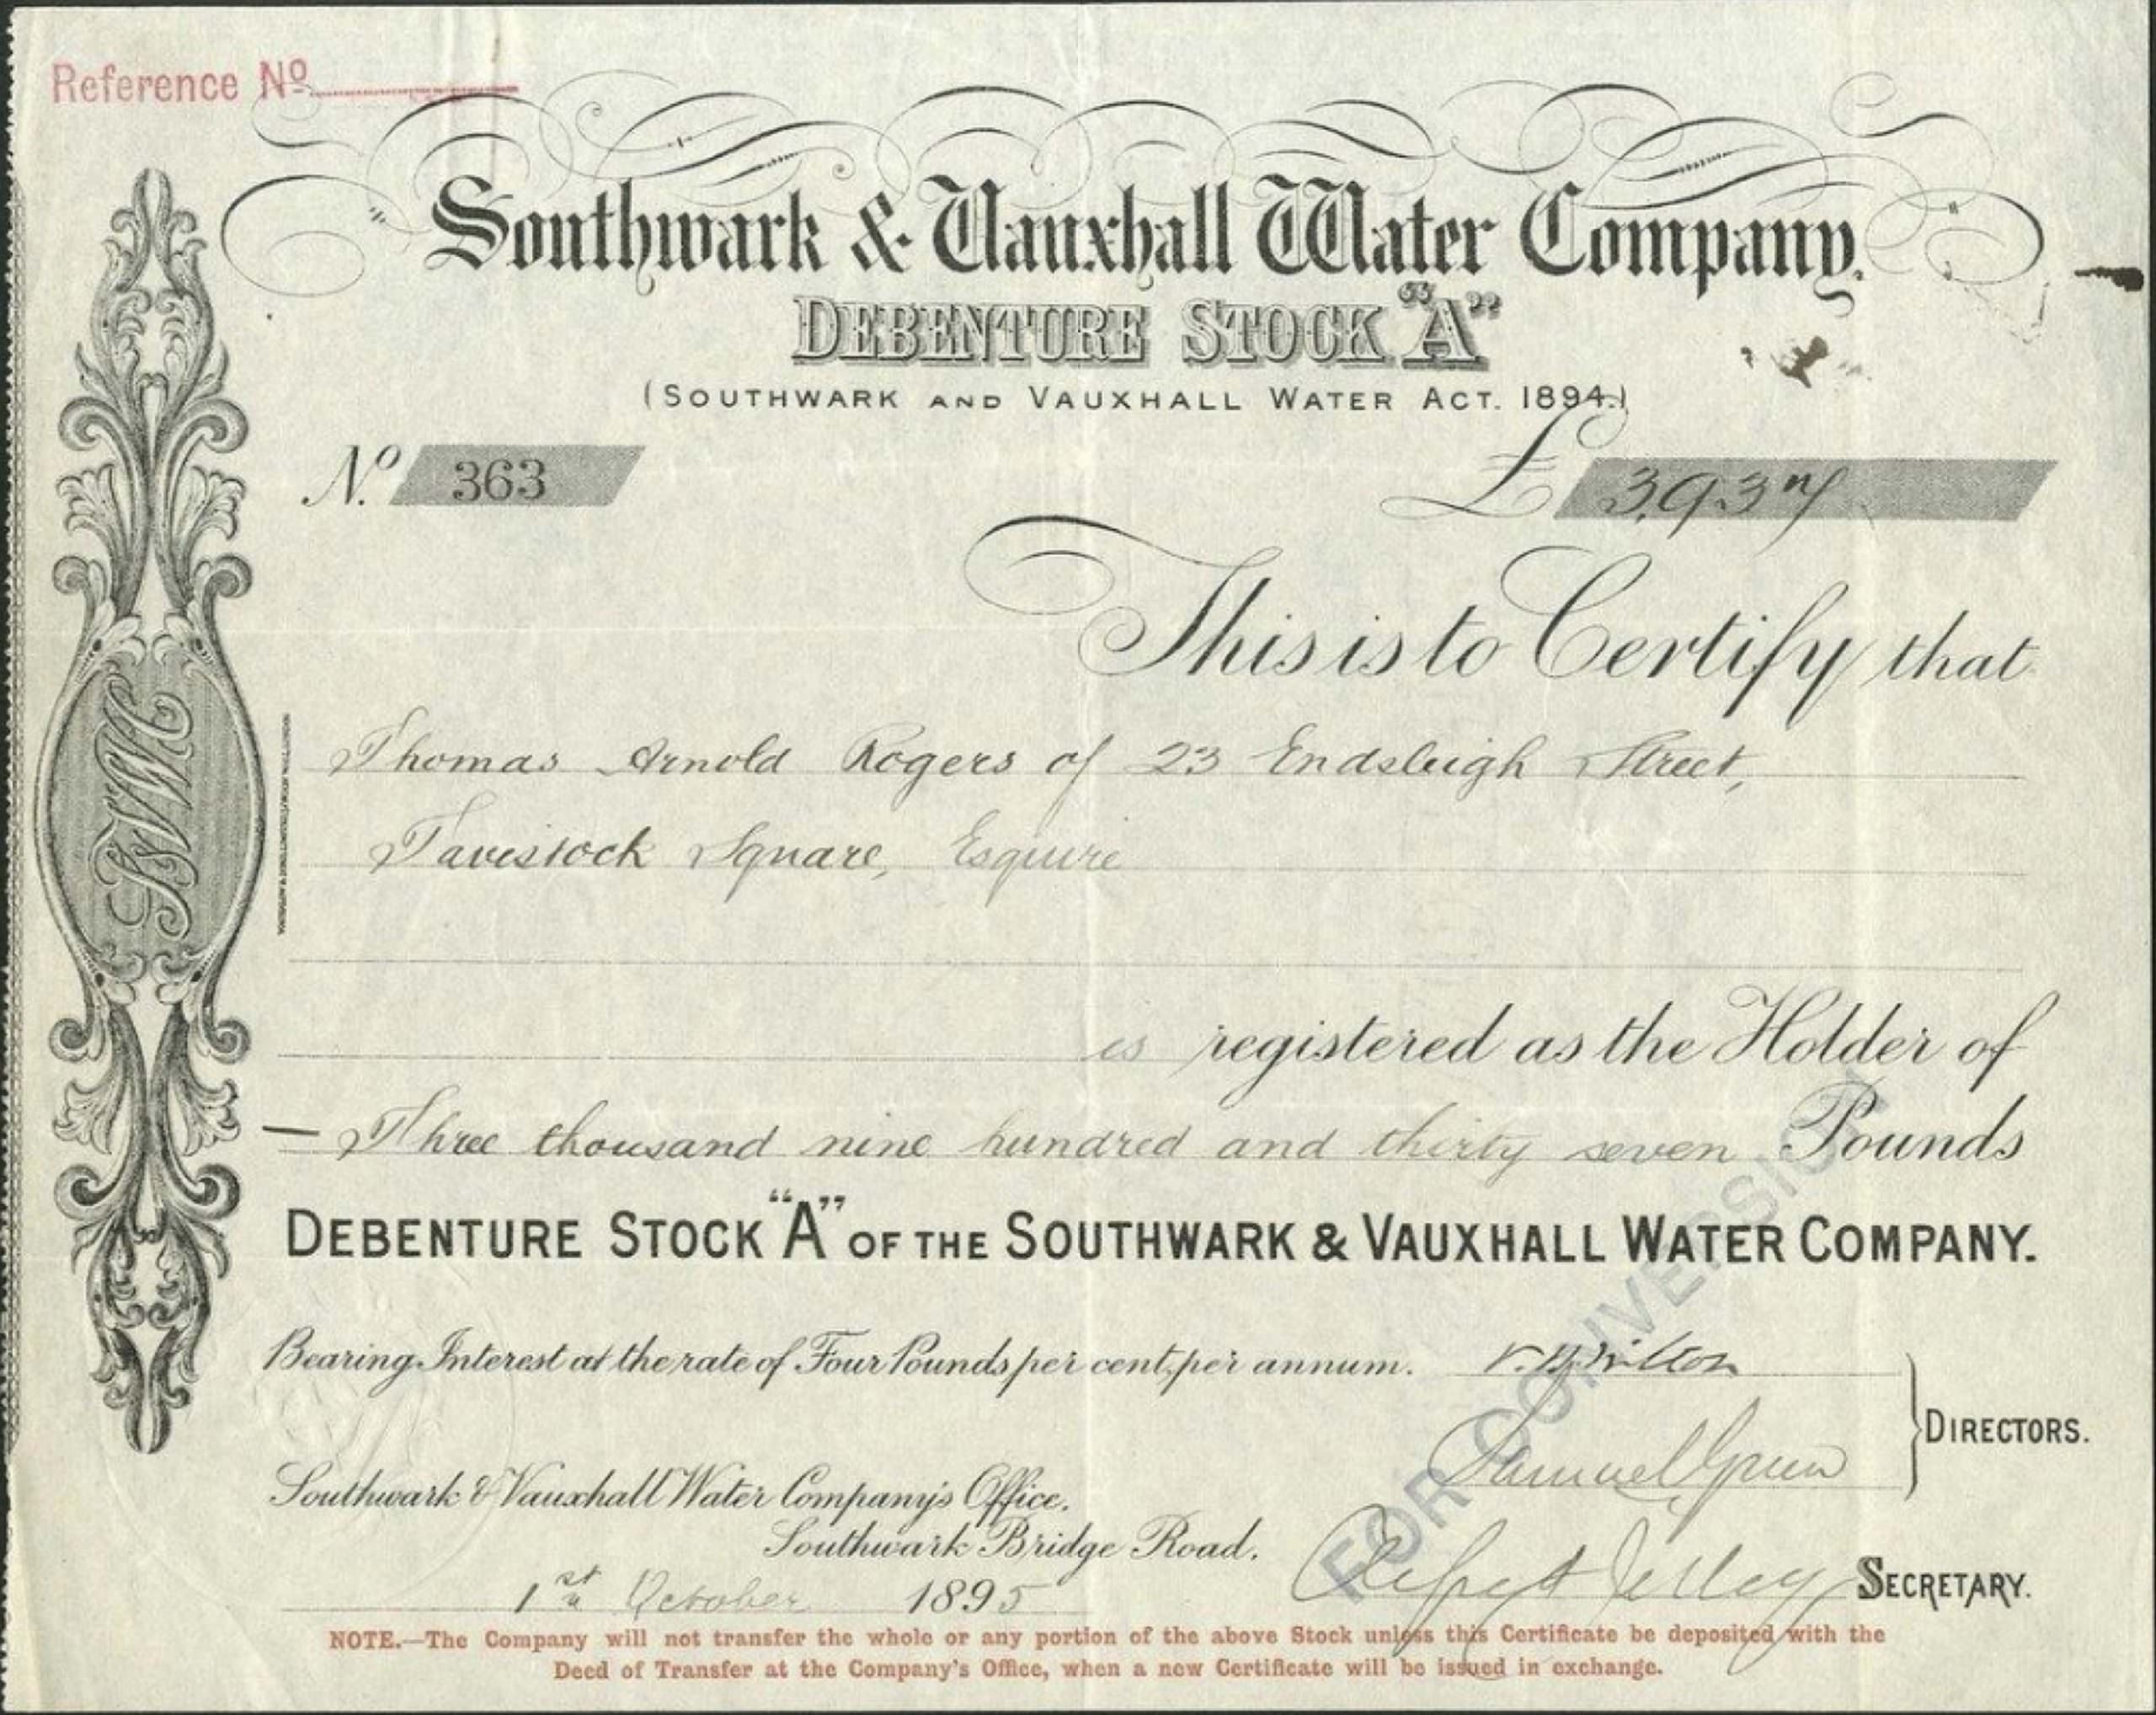 Reference Nº
Southwark & Vauxhall Water Company.
DEBENTURE STOCK "A"
(SOUTHWARK AND VAUXHALL WATER ACT. 1894.)
Nº 363
£ 3,937
This is to Certify that
Thomas Arnold Rogers of 23 Endsleigh Street,
Tavistock Square, Esquire
is registered as the Holder of
— Three thousand nine hundred and thirty seven Pounds
DEBENTURE STOCK "A" OF THE SOUTHWARK & VAUXHALL WATER COMPANY.
Bearing Interest at the rate of Four Pounds per cent, per annum.
Samuel Green
DIRECTORS.
Southwark & Vauxhall Water Company's Office.
Southwark Bridge Road.
1st October 1895
Alfred Jelley SECRETARY.
FOR CONVERSION
NOTE.—The Company will not transfer the whole or any portion of the above Stock unless this Certificate be deposited with the
Deed of Transfer at the Company's Office, when a new Certificate will be issued in exchange.
SVWC